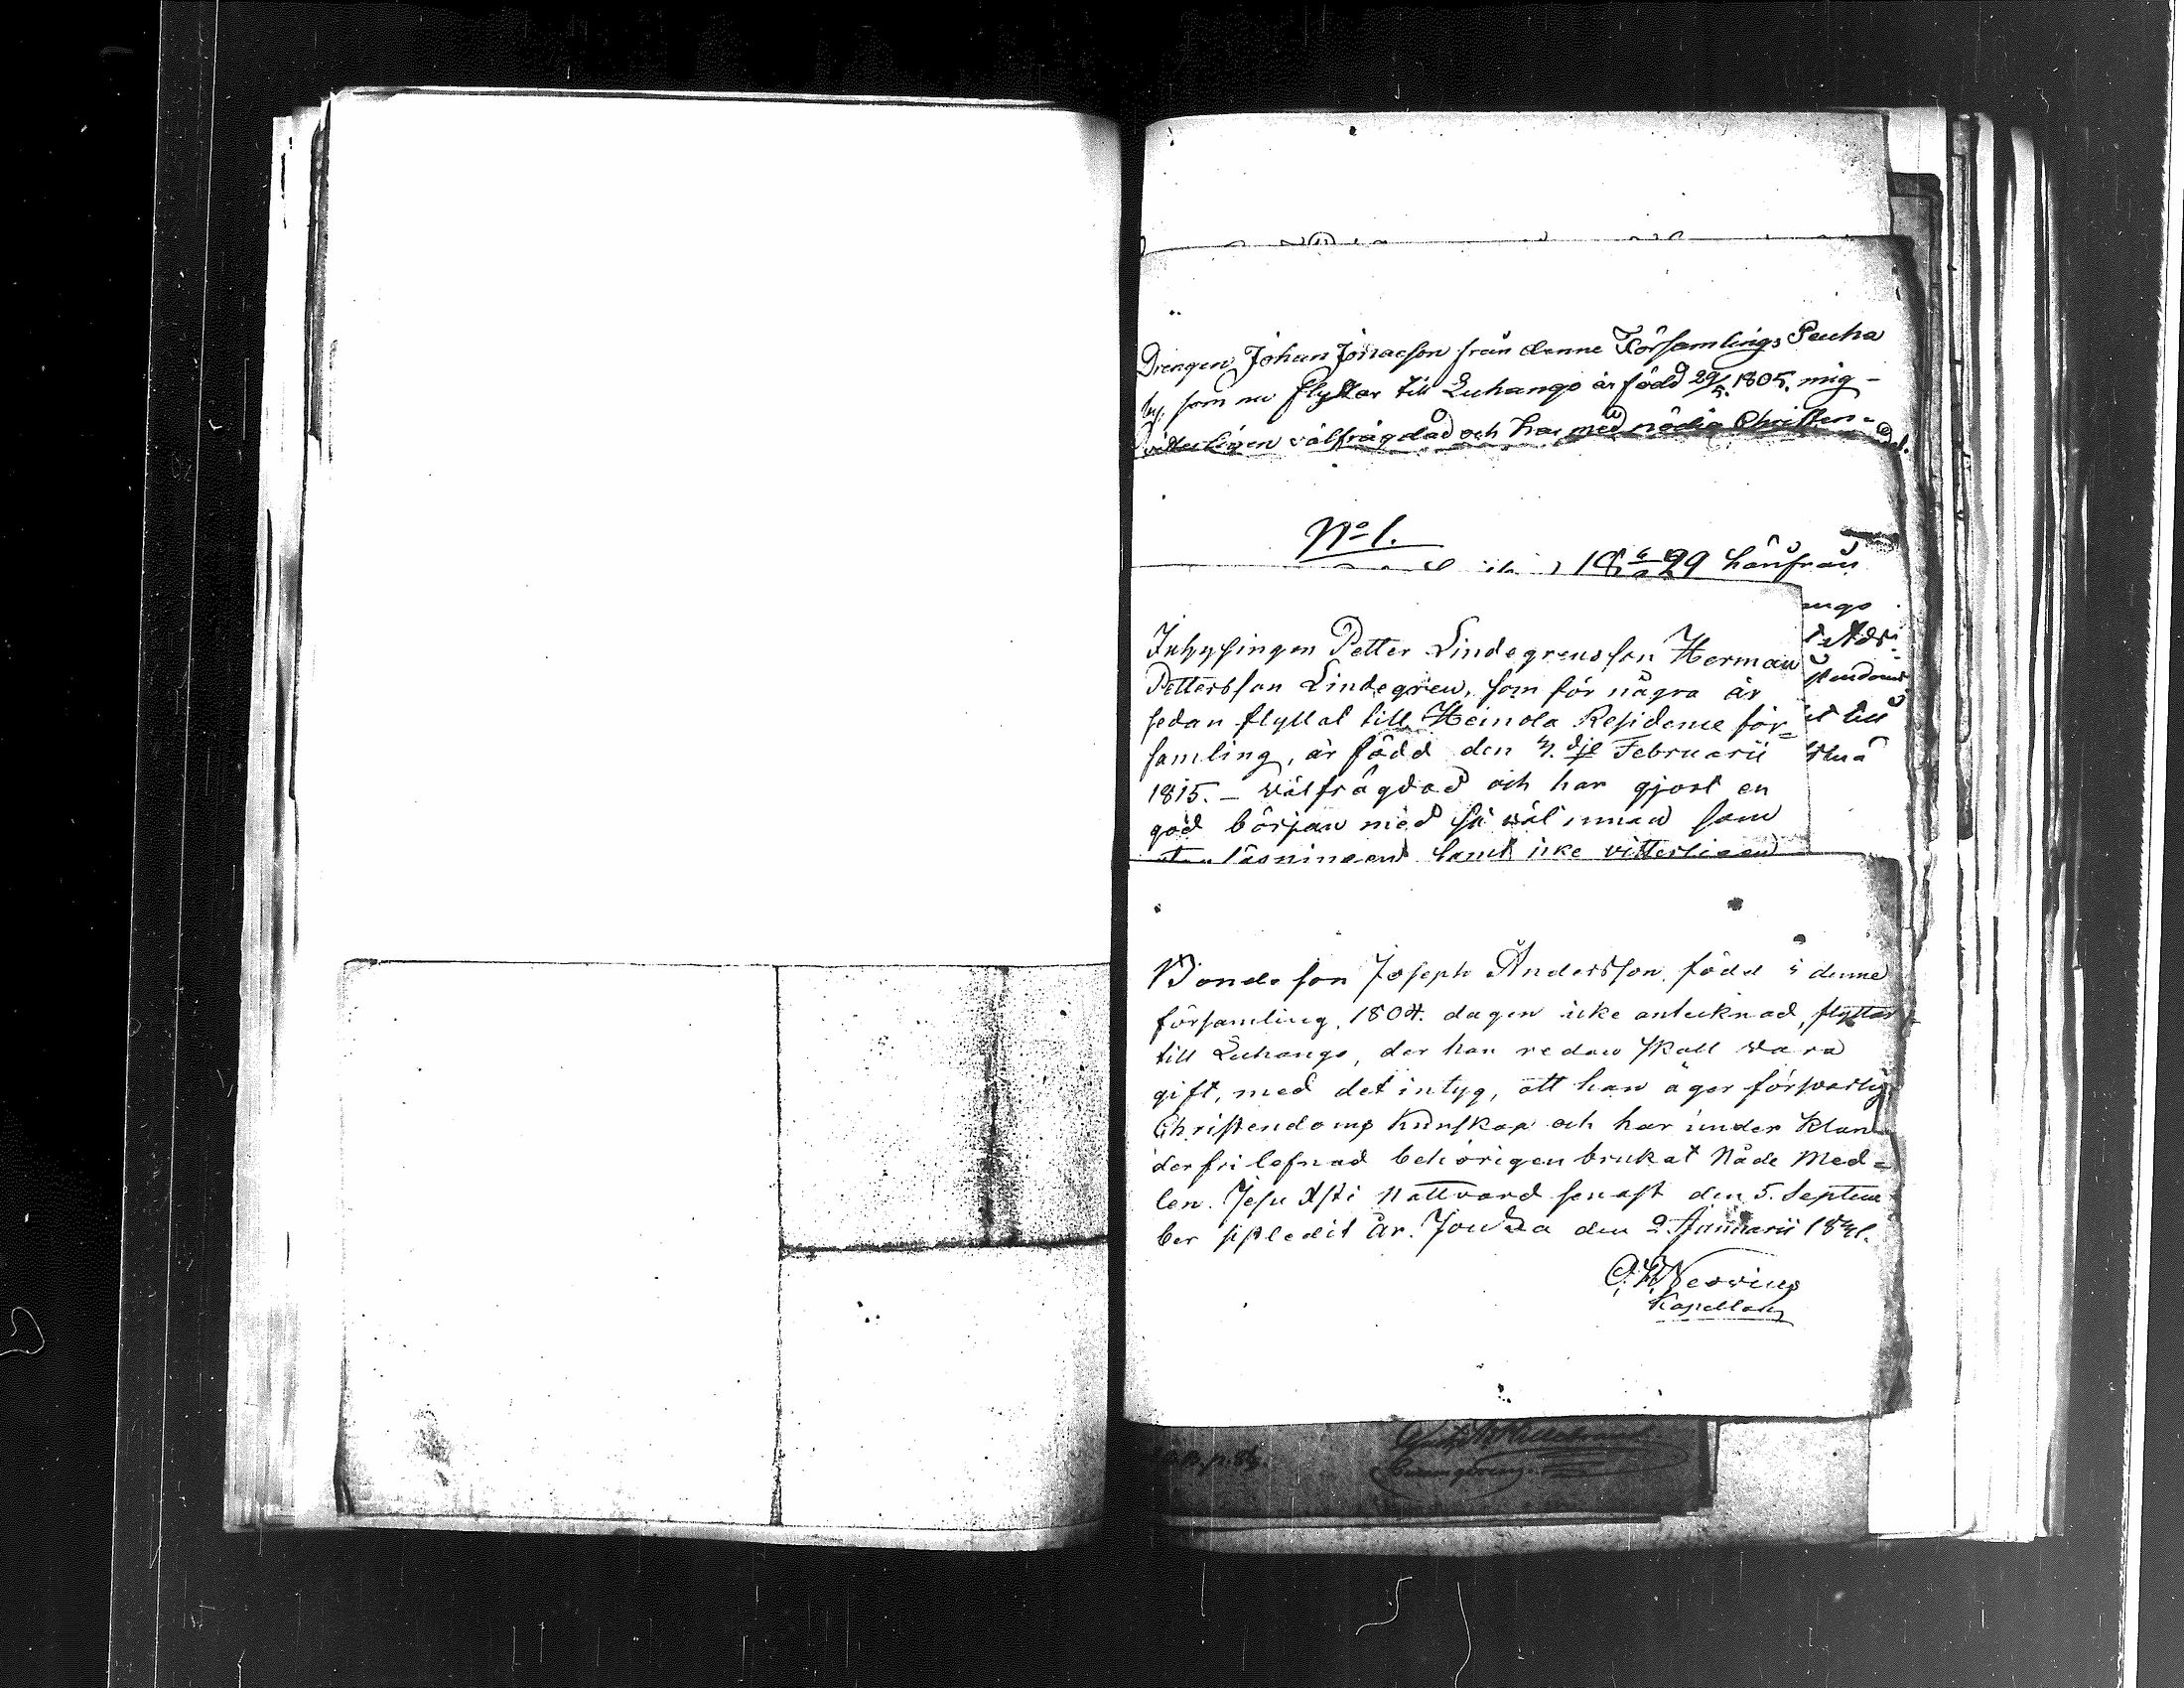 Drengen Johan Jönaeson från denne Församlings
by. som nu flyttar till Luhango är född 29/5. 1805. mig-
vitterligen välfrägdad och har med nödig Christen-
No 1.
härifrån
ango
Inhysingen Petter Lindegrens son Herman
Pettersson Lindegren, som för några år
sedan flyttat till Heinola Residence för=
samling, är född den dje Februarii
till
1815. - välfrägdad och har gjort en
god början med så väl innan som
läsningen samt icke vitterligen
Bondeson Joseph Andersson, född i denne
församling, 1804. dagen icke antecknad, flyttar
till Luhango, der han redan skall vara
gift, med det intyg, att han äger försvarlig
Christendoms kunskap och har under klan-
derfri lefnad behörigen brukat Nåde Med=
len. Jesu Xsti Nattvard senast den 5. Septem
ber sistledit år. Joutza den 2. Januarii 1841.
Kapellan